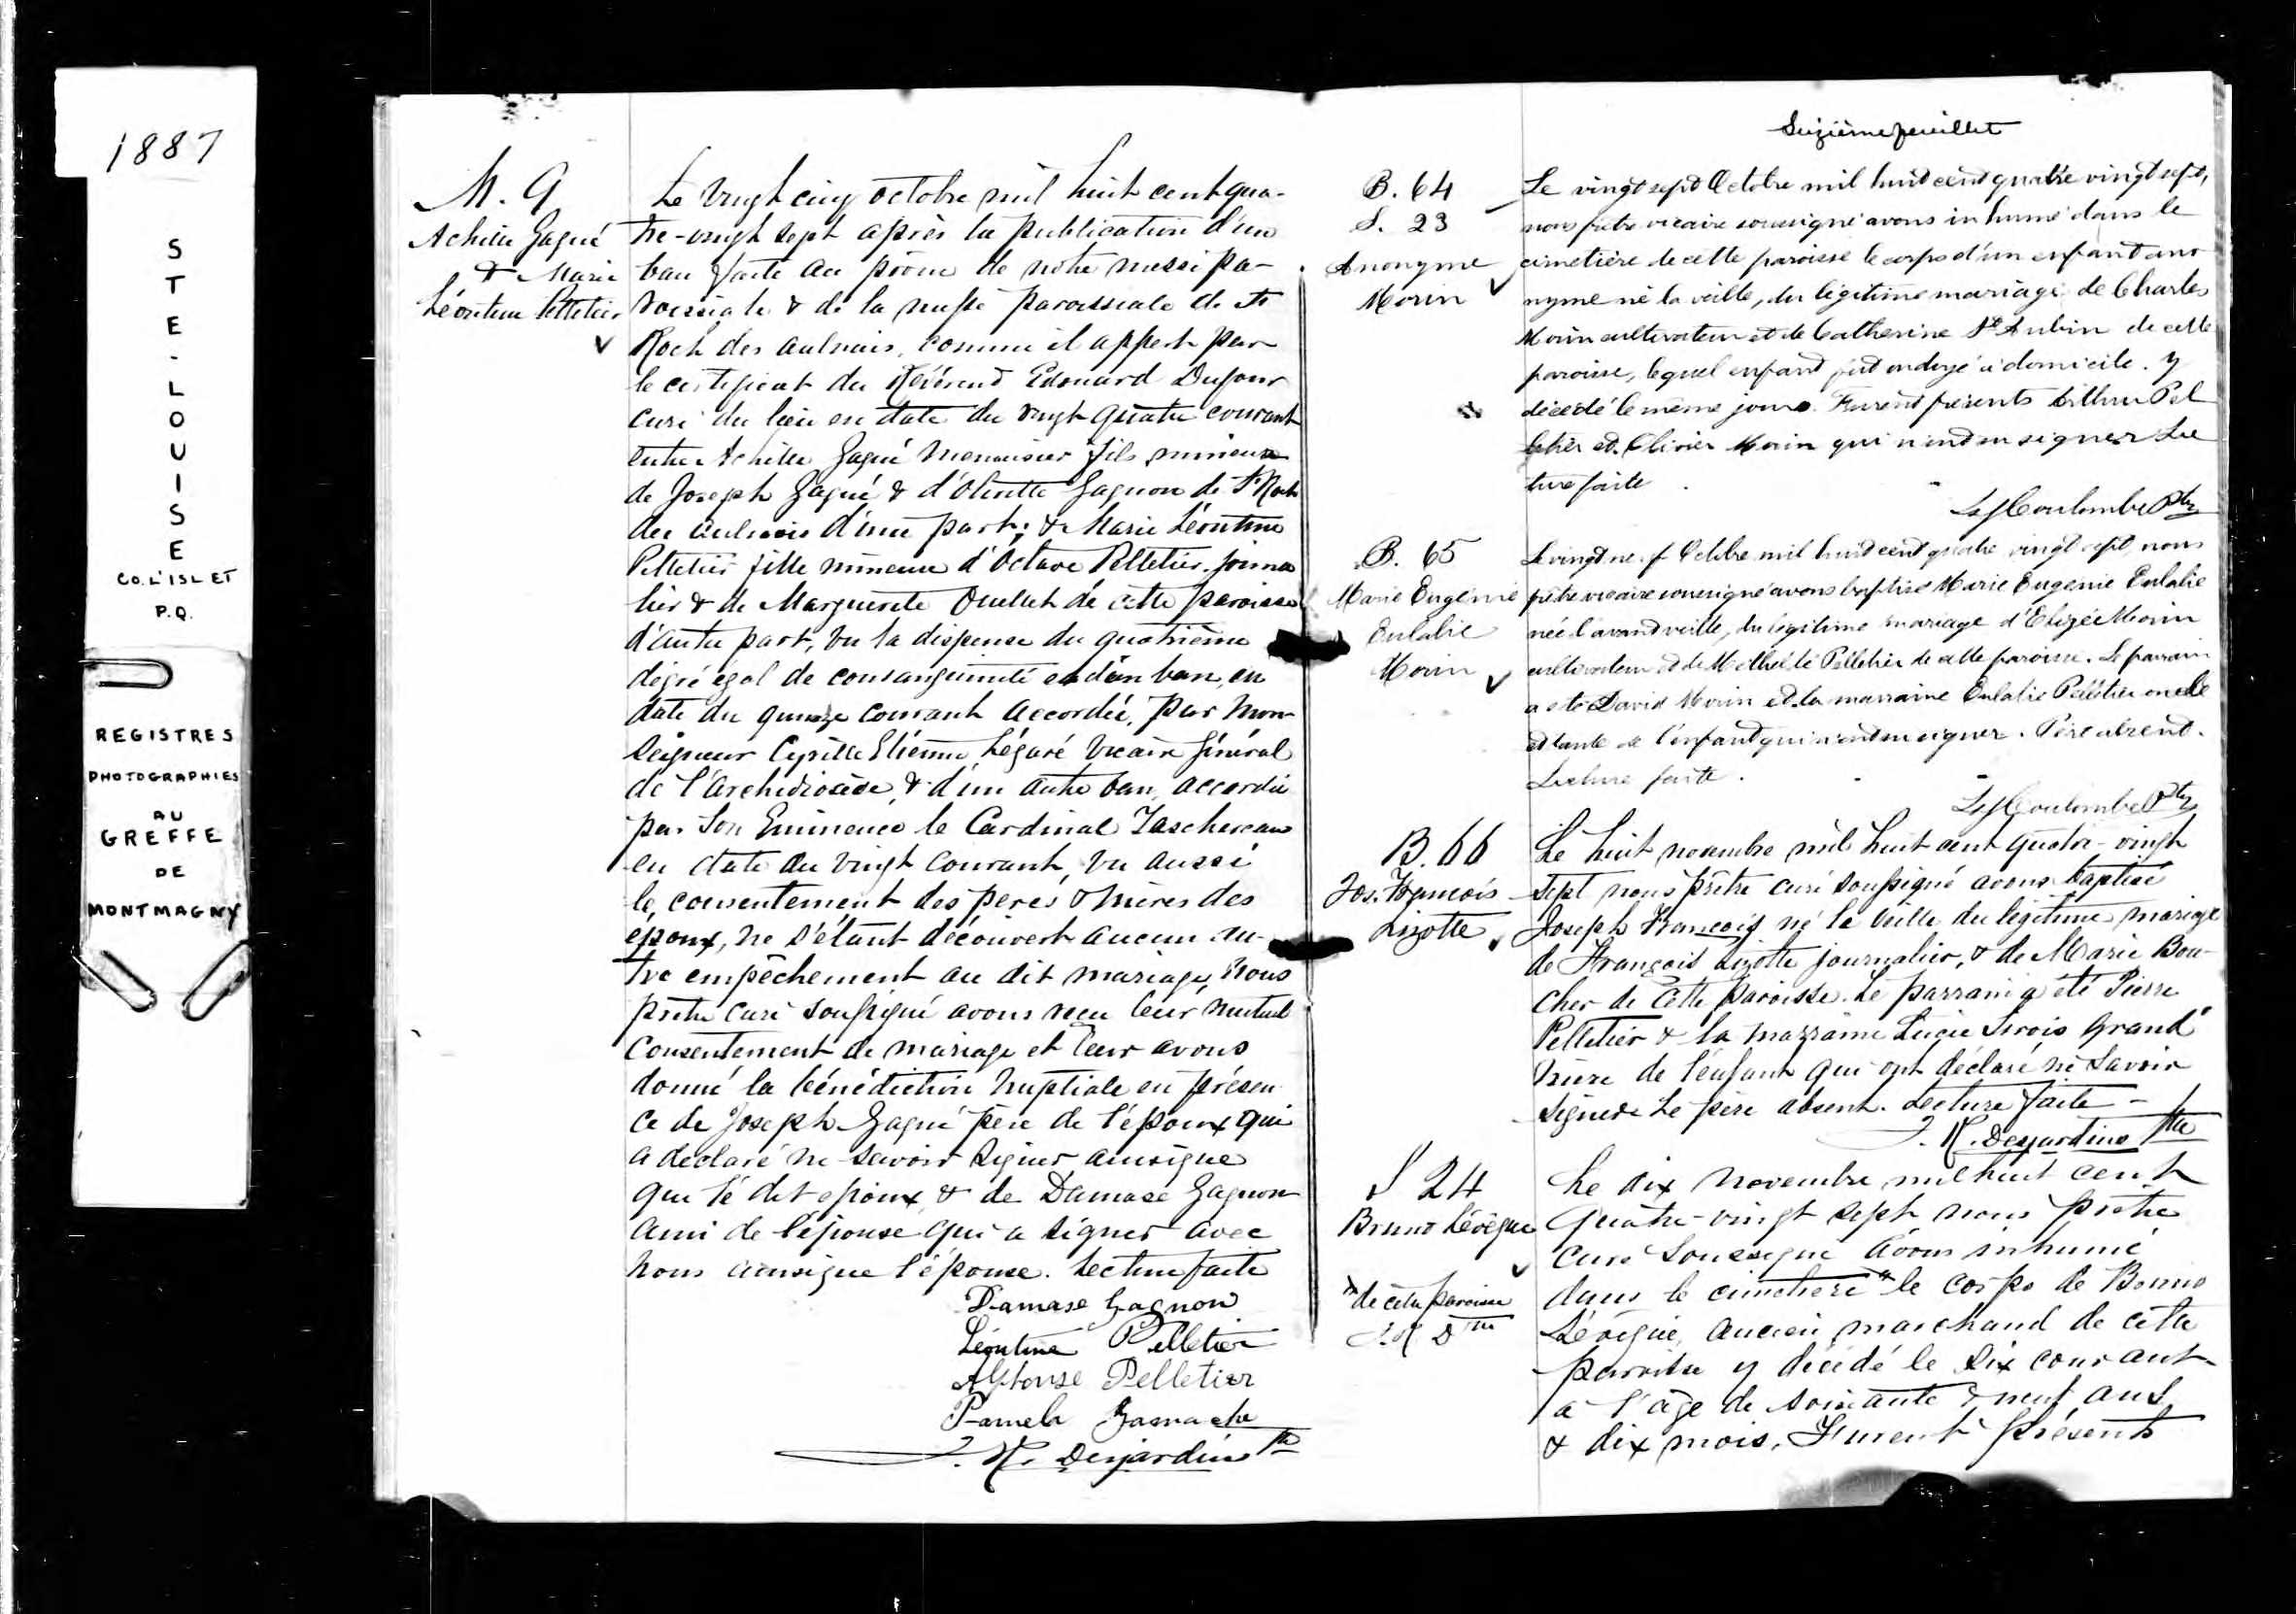 1887
STE-LOUISE
CO. L'ISLET
P.Q.
REGISTRES
PHOTOGRAPHIES
AU
GREFFE
DE
MONTMAGNY
M. 9
Achille Gagné
& Marie
Léontine Pelletier
Le vingt cinq octobre mil huit cent qua-
tre-vingt sept après la publication d'un
ban faite au prône de notre messe pa-
roissiale & de la messe paroissiale de St
Roch des aulnais, comme il appert par
le certificat du Révérend Edouard Dufour
curé du lieu en date du vingt quatre courant
entre Achille Gagné menuisier fils mineur
de Joseph Gagné & d'Olivette Gagnon de St Roch
des aulnais d'une part; & Marie Léontine
Pelletier fille mineure d'Octave Pelletier journa
lier & de Marguerite Ouellet de cette paroisse
d'autre part, vu la dispense du quatrième
dégré égal de consanguinité et d'un ban, en
date du quinze courant accordée, par Mon-
seigneur Cyrille Etienne Légaré Vicaire Général
de l'Archidiocèse, & d'un autre ban, accordée
par Son Eminence le Cardinal Taschereau
en date du vingt courant, vu aussi
le consentement des pères & mères des
epoux, ne s'étant découvert aucun au-
tre empêchement au dit mariage, Nous
prêtre curé soussigné avons reçu leur mutuel
consentement de mariage et leur avons
donné la bénédiction nuptiale en présen
ce de Joseph Gagné père de l'époux qui
a déclaré ne savoir signer ainsique
que le dit epoux, & de Damase Gagnon
ami de l'épouse qui a signer avec
nous ainsique l'épouse. Lecture faite
Damase Gagnon
Léontine Pelletier
Alphonse Pelletier
Pamela Gamache
Desjardins Ptre
Seizième feuillet
B. 64
S. 23
Anonyme
Morin
Le vingt sept Octobre mil huit cent quatre vingt sept,
nous prêtre vicaire soussigné avons inhumé dans le
cimetière de cette paroisse le corps d'un enfant ano
nyme né la veille, du légitime mariage de Charles
Morin cultivateur et de Catherine St Aubin de cette
paroisse, lequel enfant fut ondoyé à domicile. y
décédé le même jour. Furent présents Arthur Pel
letier et Olivier Morin qui n'ont su signer Lec
ture faite
Coulombe Ptre
B. 65
Marie Eugénie
Eulalie
Morin
Le vingt neuf Octobre mil huit cent quatre vingt sept, nous
prêtre vicaire soussigné avons baptisé Marie Eugénie Eulalie
née l'avant veille, du légitime mariage d'Elizée Morin
cultivateur et de Pelletier de cette paroisse. Le parrain
a été David Morin et la marraine Eulalie Pelletier oncle
et tante de l'enfant qui n'ont su signer. Père absent.
Lecture faite.
Coulombe Ptre
B. 66
Jos. François
Lizotte
Le huit novembre mil huit cent quatre-vingt
sept nous prêtre curé soussigné avons baptisé
Joseph François né la veille du légitime mariage
de François Lizotte journalier, & de Marie Bou-
cher de cette paroisse. Le parrain a été Pierre
Pelletier & la marraine Lucie Sirois grand'
mère de l'enfant qui ont déclaré ne savoir
signer Le père absent. Lecture faite -
Desjardins Ptre
S 24
Bruno Lévêque
* de cette paroisse
Le dix novembre mil huit cent
quatre-vingt sept nous prêtre
curé soussigné avons inhumé
dans le cimetière * le corps de Bruno
Lévêque, ancien marchand de cette
paroisse y décédé le six courant
à l'âge de soixante & neuf ans
& dix mois. Furent présents